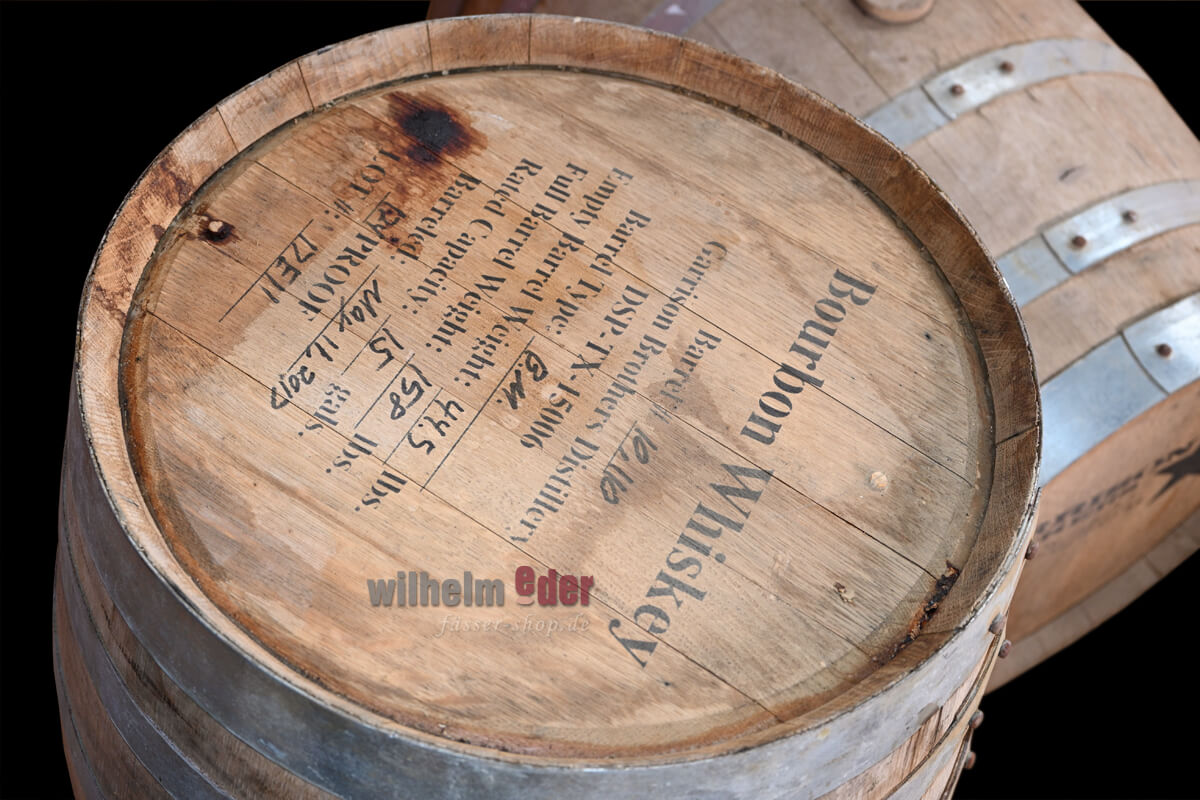 Bourbon Whiskey
Barrel #: 10,110
Garrison Brothers Distillery
DSP-TX-15006
Barrel Type: B.M.
Empty Barrel Weight: 44.5 lbs.
Full Barrel Weight: 158 lbs.
Rated Capacity: 15 gals.
Barreled: May 11, 2017
PROOF
LOT #: 17E11
wilhelm eder
fässer-shop.de